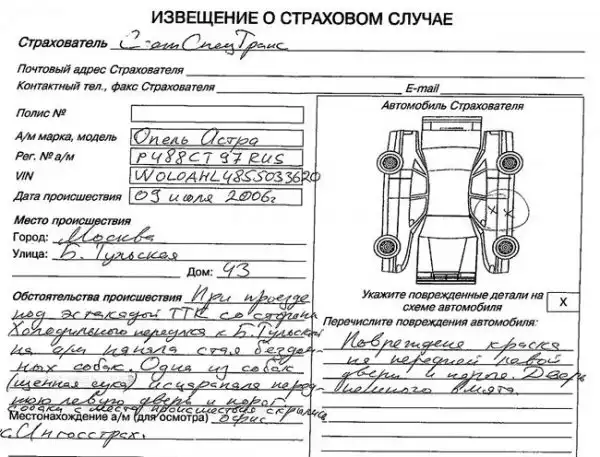 ИЗВЕЩЕНИЕ О СТРАХОВОМ СЛУЧАЕ
Страхователь СпецТранс
Почтовый адрес Страхователя
Контактный тел., факс Страхователя E-mail
Полис №
Автомобиль Страхователя
А/м марка, модель Опель Астра
Рег. № а/м Р488СТ 97 RUS
VIN W0L0AHL4855033620
Дата происшествия 09 июля 2006г
Место происшествия
Город: Москва
Улица: Б. Тульская
Дом: 43
Укажите поврежденные детали на схеме автомобиля X
Обстоятельства происшествия При проезде
под эстакадой ТТК со стороны
Холодильного переулка к Б. Тульской
на а/м напала стая бездом-
ных собак. Одна из собак
(щенная сука) исцарапала перед-
нюю левую дверь и порог
Собака с места происшествия скрылась
Местонахождение а/м (для осмотра) офис
с. Ингосстрах.
Перечислите повреждения автомобиля:
Повреждение краска
на передней левой
двери и пороге. Дверь
немного вмята.